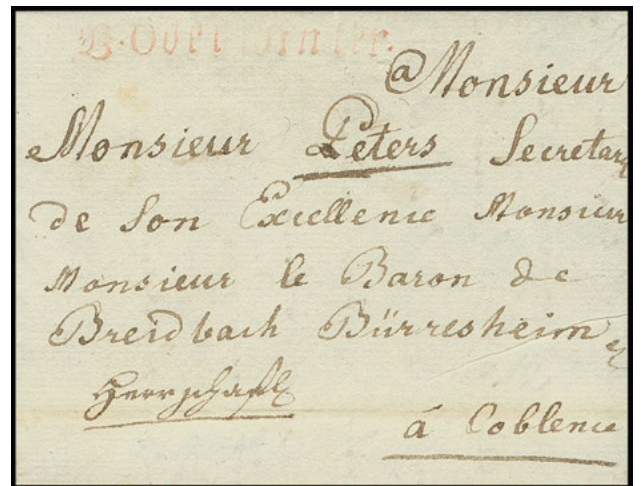 D.Oberwinter.
@ Monsieur
Monsieur Peters Secretair
de Son Excellence Monsieur
Monsieur le Baron de
Breidbach Bürresheim
Herrschaftl
á Coblence